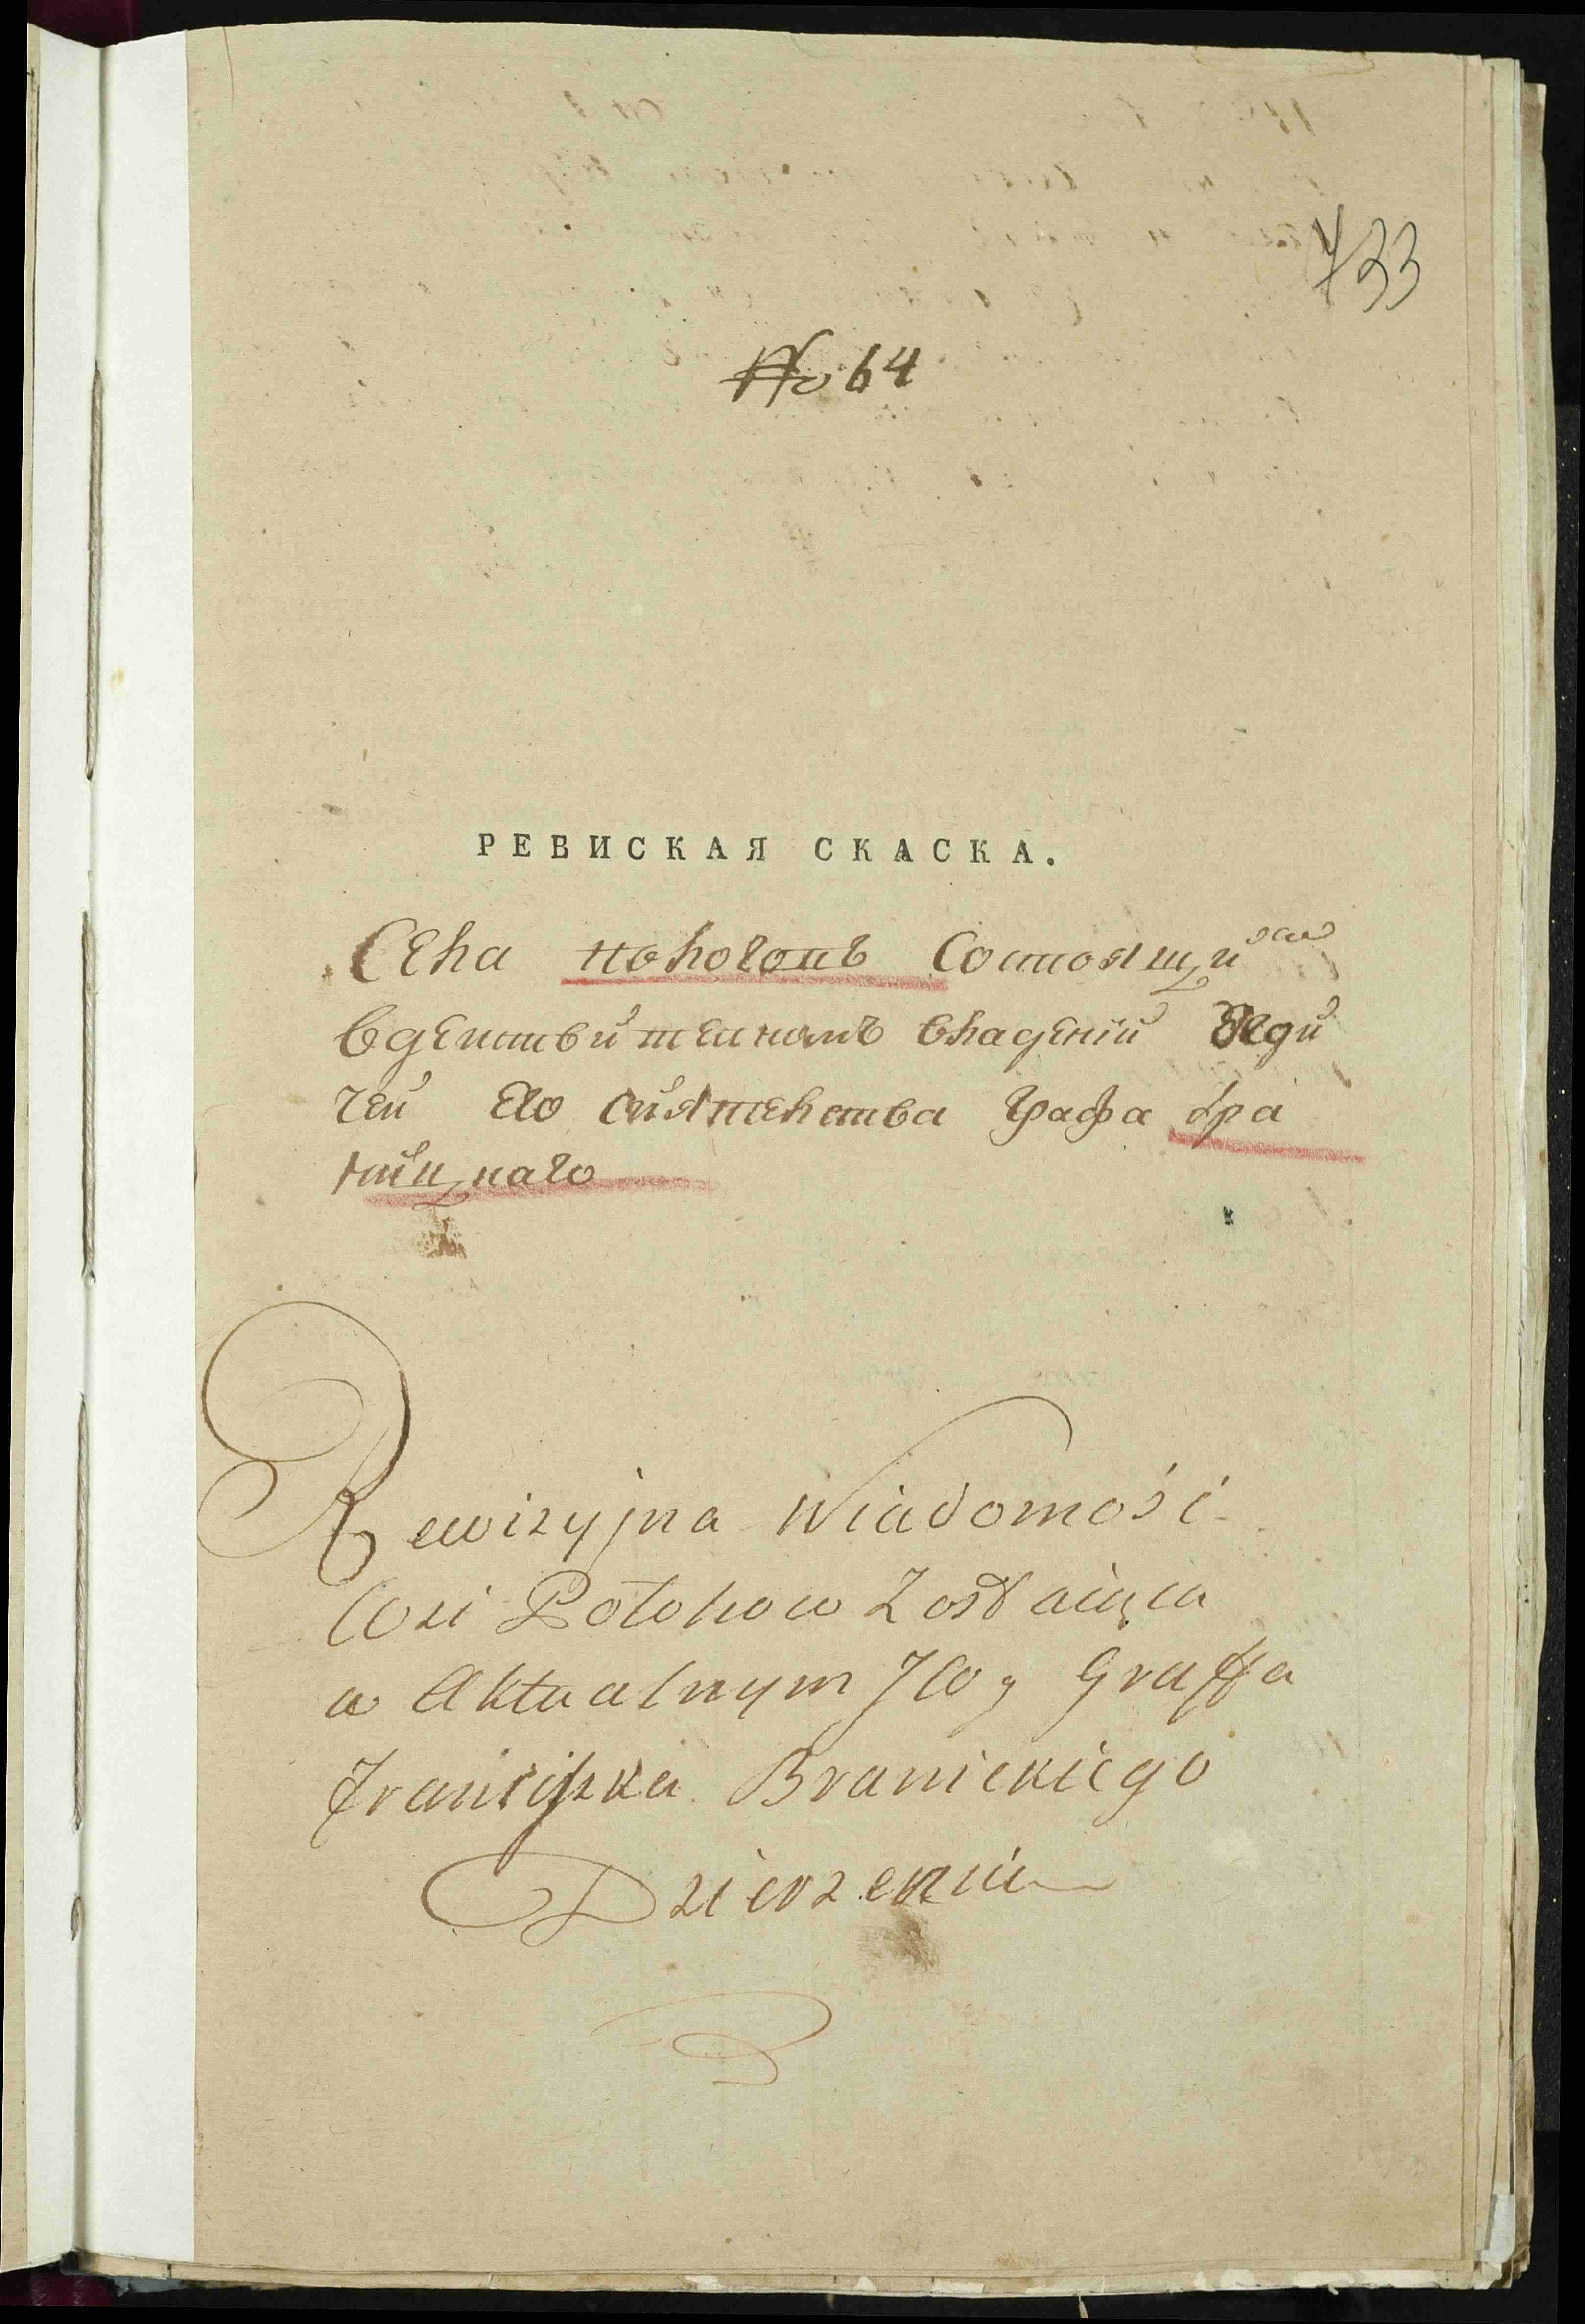 733
No 64
РЕВИСКАЯ СКАСКА.
Села Пологовъ Состоящийся
вдеиствителномъ владении Педи
чей Его сиятелства Графа Бра
ницкаго
Rewizyjna Wiadomość
Wsi Połohow Zostaiąca
w Aktualnym JW. Graffa
Franciszka Branickiego
Dzierzeniu